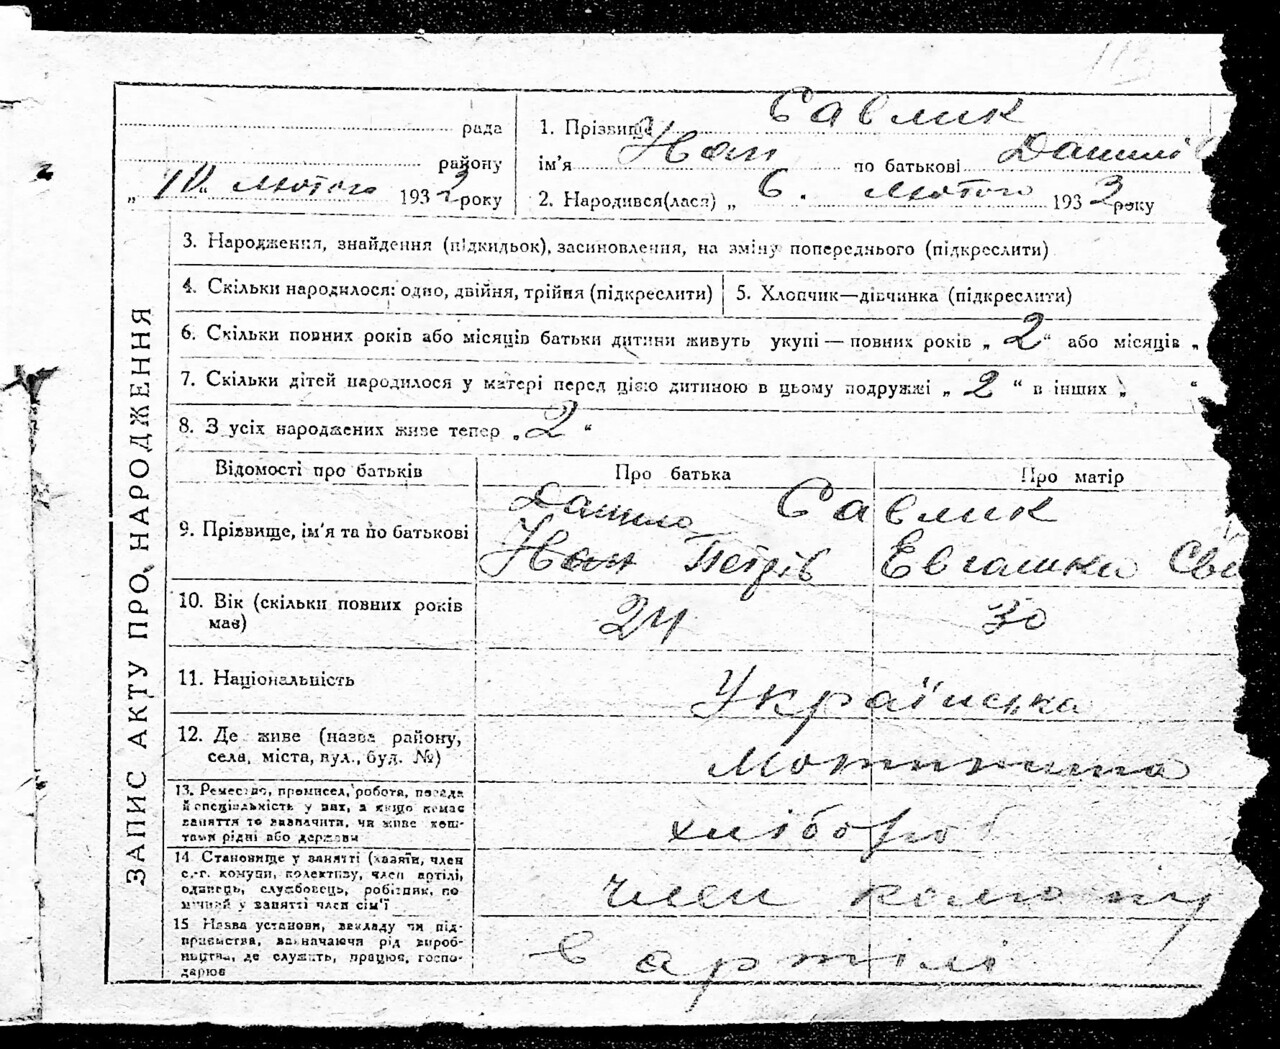 113
рада
району
„ 10 “ лютого 1933 року
1. Прізвище Савлик
ім’я Иван по батькові Данилів
2. Народився(лася) „ 6. лютого 1933 року
ЗАПИС АКТУ ПРО НАРОДЖЕННЯ
3. Народження, знайдення (підкидьок), засиновлення, на зміну попереднього (підкреслити)
4. Скільки народилося: одно, двійня, трійня (підкреслити)
5. Хлопчик—дівчинка (підкреслити)
6. Скільки повних років або місяців батьки дитини живуть укупі — повних років „ 2 “ або місяців „
7. Скільки дітей народилося у матері перед цією дитиною в цьому подружжі „ 2 “ в інших „ “
8. З усіх народжених живе тепер „ 2 “
Відомості про батьків Про батька Про матір
9. Прізвище, ім’я та по батькові
Данило Савлик
Иван Петрів Евгашка
10. Вік (скільки повних років має) 24 30
11. Національність Українська
12. Де живе (назва району,
села, міста, вул., буд. №)
13. Ремество, промисел, робота, посада
й спеціяльність у них, а якщо немає
заняття то зазначити, чи живе кош-
тами рідні або держави
хлібороб
14. Становище у занятті (хазяїн, член
с.-г. комуни, колективу, член артілі,
одинець, службовець, робітник, по
мічний у занятті член сім’ї
член
15 Назва установи, закладу чи під-
приємства, зазначаючи рід вироб-
ництва, де служить, працює, госпо-
дарює
в артілі